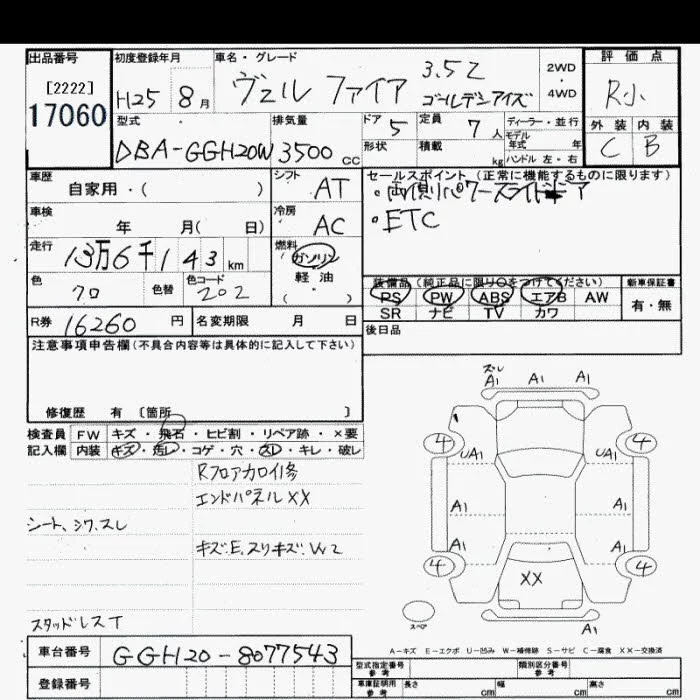 出品番号
[2222]
17060
初度登録年月
H25 8月
車名・グレード
ヴェルファイア 3.5Z
ゴールデンアイズ
2WD
・
4WD
評価点
R小
外装 内装
C B
型式
DBA-GGH20W
排気量
3500 cc
ドア
5
定員
7人
形状
積載
kg
ディーラー・並行
モデル
年式 年
ハンドル 左・右
車歴
自家用・( )
シフト
AT
車検
年 月( 日)
冷房
AC
走行
13万6千143 km
燃料
ガソリン
軽油
( )
色
クロ
色替
色コード
202
R券 16260 円
名変期限 月 日
セールスポイント(正常に機能するものに限ります)
・両側パワースライドドア
・ETC
装備品(純正品に限り○をつけてください)
PS PW ABS エアB AW
SR ナビ TV カワ
新車保証書
有・無
後日品
注意事項申告欄(不具合内容等は具体的に記入して下さい)
修復歴 有 〔箇所 〕
検査員
記入欄
FW キズ・飛石・ヒビ割・リペア跡・×要
内装 キズ・汚レ・コゲ・穴・スレ・キレ・破レ
Rフロアカロイ修
エンドパネルXX
シート、シワ、スレ
キズ.E.スリキズ.W2
スタッドレスT
スレ
A1 A1 A1
4 4
UA1 UA1
A1 A1
A1 A1
4 4
XX
スペア
A1
A-キズ E-エクボ U-凹み W-補修跡 S-サビ C-腐食 XX-交換済
車台番号 GGH20-8077543
登録番号
型式指定番号
参考
類別区分番号
参考
車庫証明用
参考
長さ cm 幅 cm 高さ cm